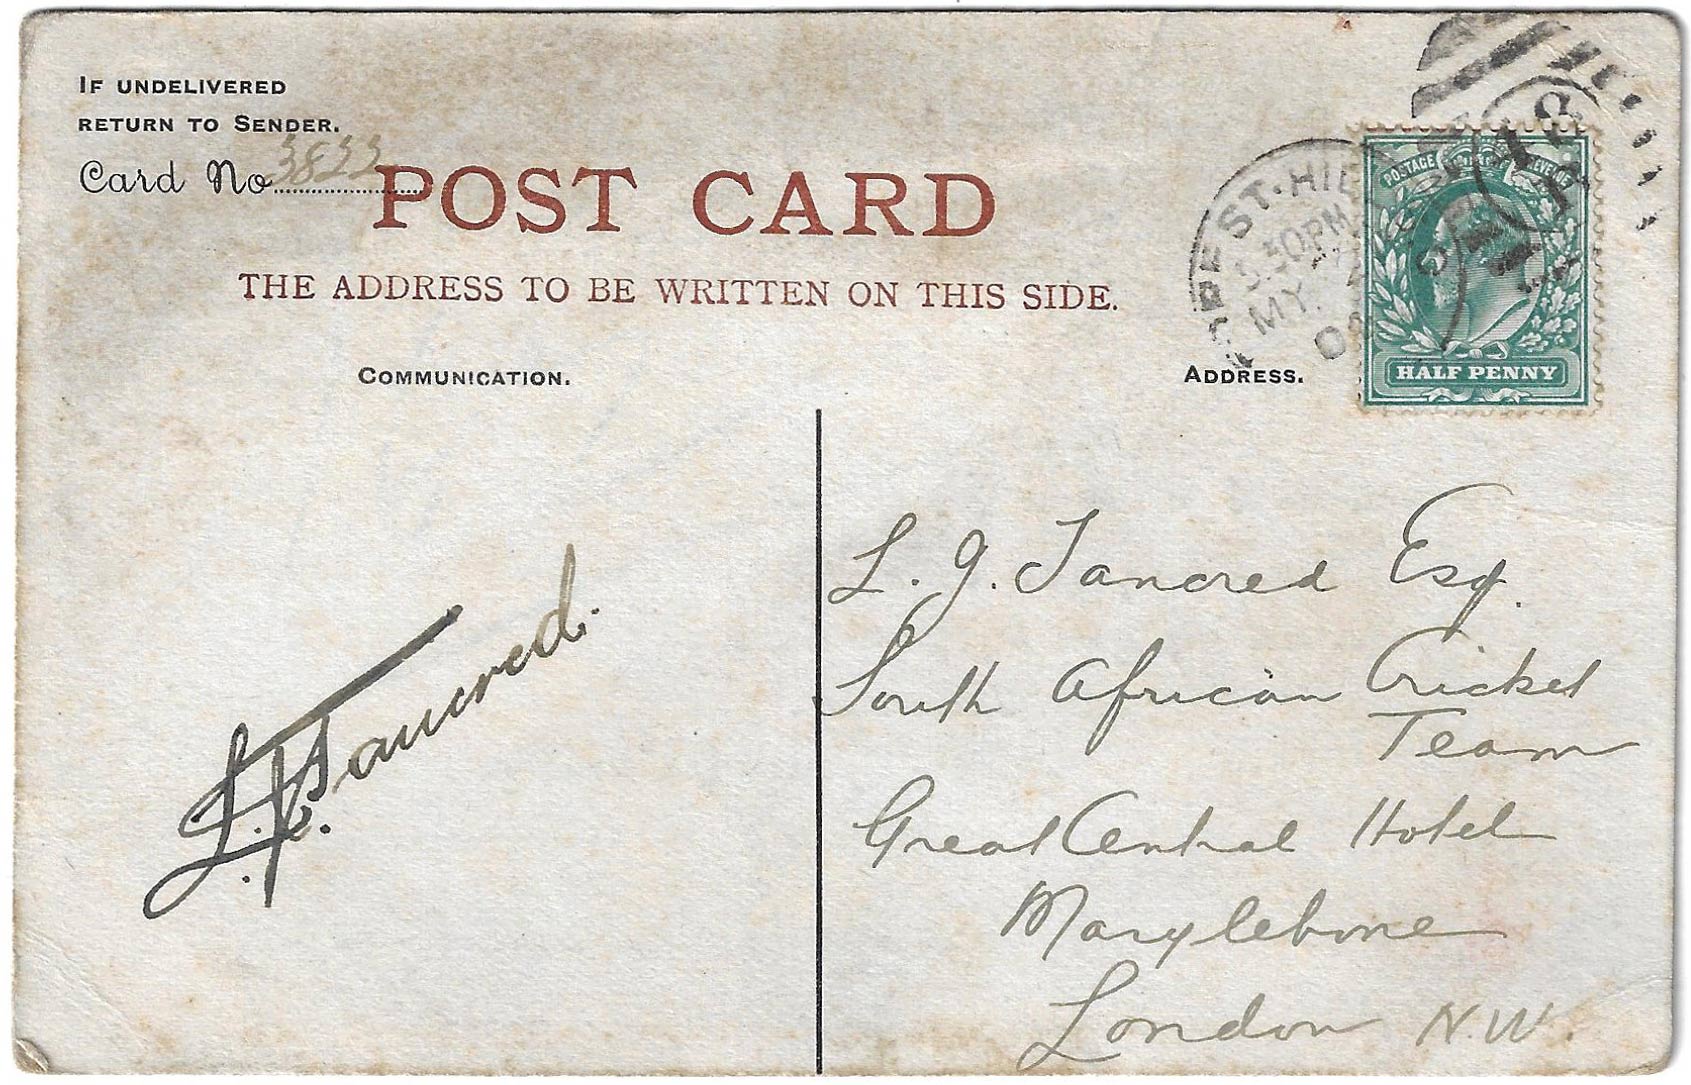 IF UNDELIVERED
RETURN TO SENDER.
Card No 3833
POST CARD
THE ADDRESS TO BE WRITTEN ON THIS SIDE.
COMMUNICATION.
ADDRESS.
REST·HIL
30PM
MY
POSTAGE REVENUE
HALF PENNY
L. J. Tancred Esq.
South African Cricket
Team
Great Central Hotel
Marylebone
London N.W.
L. J. Tancred.